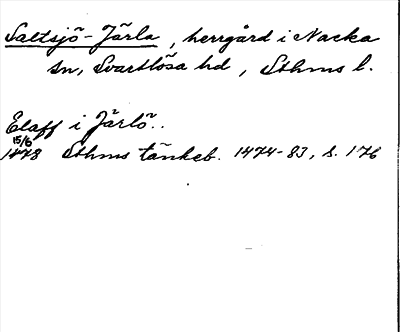 Saltsjö-Järla, herrgård i Nacka
sn, Svartlösa hd, Sthms l.
Elaff i Järlö..
15/6
1478 Sthms tänkeb. 1474-83, s. 176